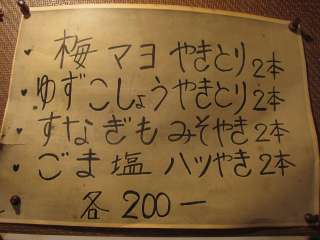 ♥ 梅マヨ やきとり 2本
♥ ゆずこしょうやきとり 2本
♥ すなぎも みそやき 2本
♥ ごま塩 ハツやき 2本
各 200ー